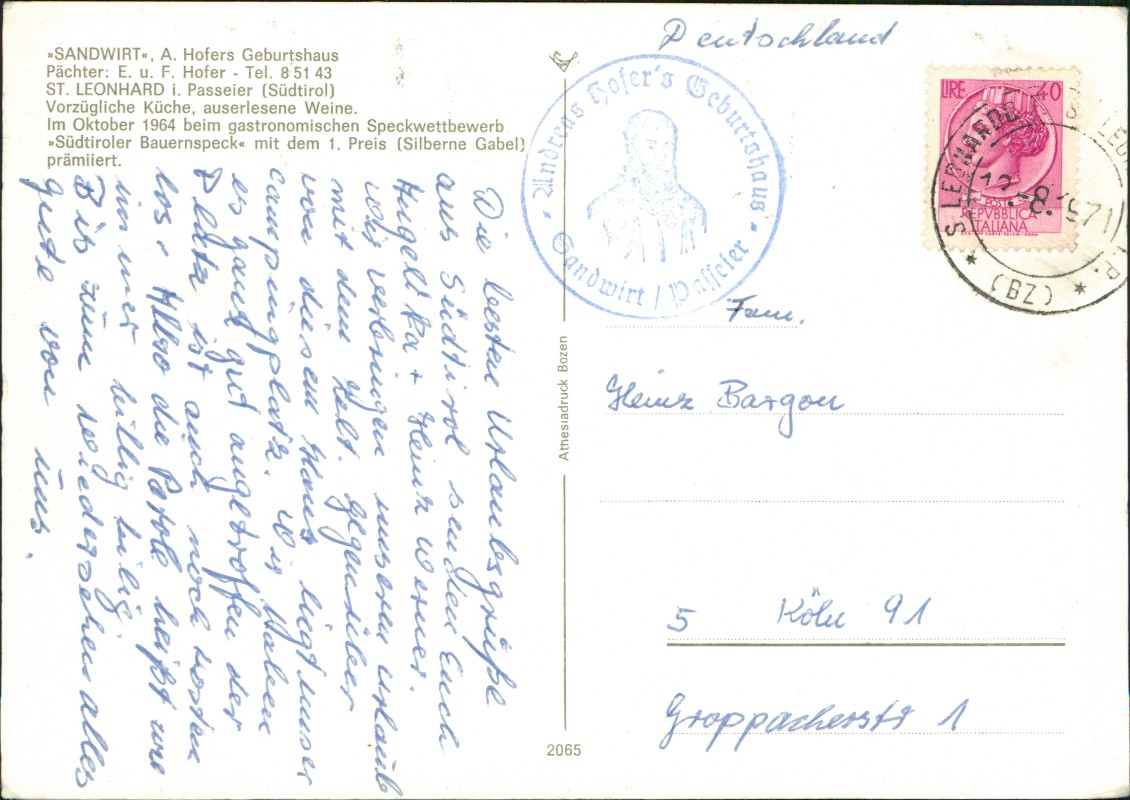 »SANDWIRT«, A. Hofers Geburtshaus
Pächter: E. u. F. Hofer - Tel. 8 51 43
ST. LEONHARD i. Passeier (Südtirol)
Vorzügliche Küche, auserlesene Weine.
Im Oktober 1964 beim gastronomischen Speckwettbewerb
»Südtiroler Bauernspeck« mit dem 1. Preis (Silberne Gabel)
prämiiert.
Die besten Urlaubsgrüße
aus Südtirol senden Euch
Angelika + Heinz Werner.
Wir verbringen unseren Urlaub
mit dem Zelt. Gegenüber
von diesem Haus ligt unser
Campingplatz. Wir haben
es ganz gut angetroffen der
Platz ist auch noch kosten
los. Also die Parole heißt wie
immer billig billig
Bis zum Wiedersehen alles
gute von uns.
Athesiadruck Bozen
2065
Deutschland
Andreas Hofer's Geburtshaus
Sandwirt / Passeier
LIRE 40
POSTE
REPVBBLICA
ITALIANA
S. LEONARDO
12.-8.1971
(BZ)
Fam.
Heinz Bargon
5 Köln 91
Groppacherstr 1